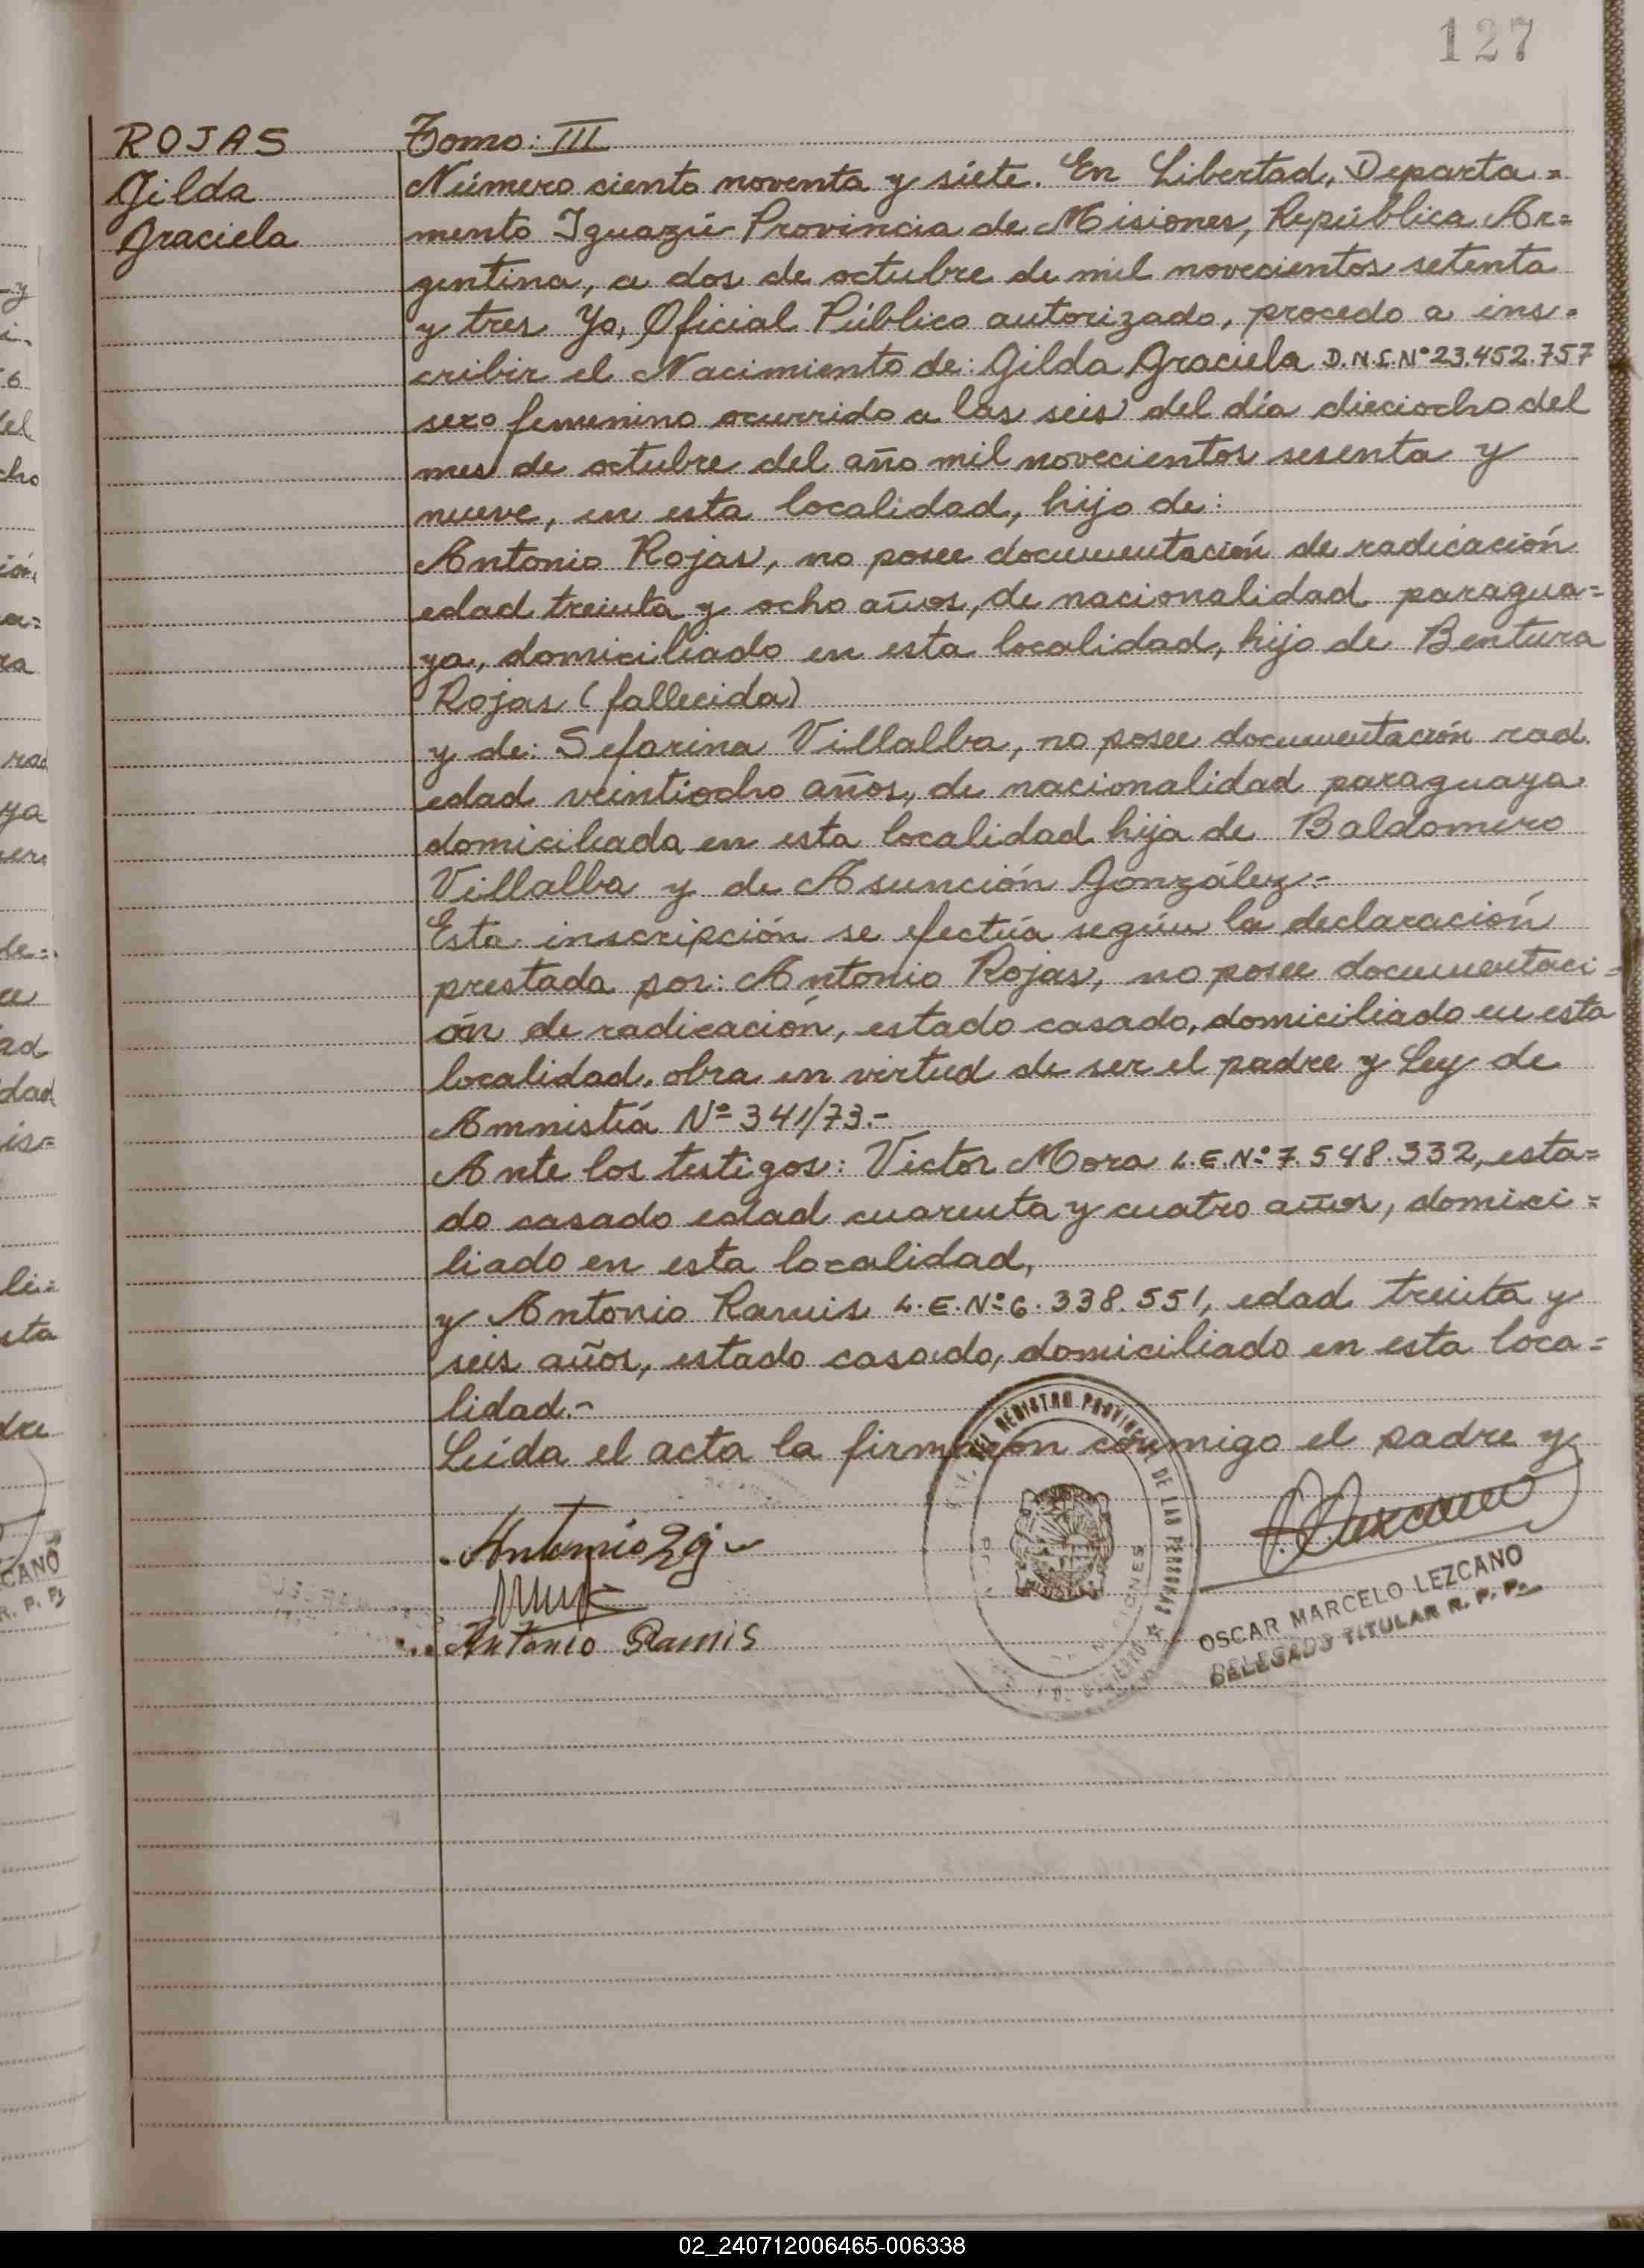 127
ROJAS
Gilda
Graciela
Tomo: III
Número ciento noventa y siete. En Libertad, Departa=
mento Iguazú Provincia de Misiones, República Ar=
gentina, a dos de octubre de mil novecientos setenta
y tres Yo, Oficial Público autorizado, procedo a ins=
cribir el Nacimiento de: Gilda Graciela D.N.I.Nº23.452.757
sexo femenino ocurrido a las seis del día dieciocho del
mes de octubre del año mil novecientos sesenta y
nueve, en esta localidad, hijo de:
Antonio Rojas, no posee documentación de radicación
edad treinta y ocho años, de nacionalidad paragua=
ya, domiciliado en esta localidad, hijo de Bentura
Rojas (fallecida)
y de: Sefarina Villalba, no posee documentación rad.
edad veintiocho años, de nacionalidad paraguaya
domiciliada en esta localidad hija de Baldomero
Villalba y de Asunción González.-
Esta inscripción se efectúa según la declaración
prestada por: Antonio Rojas, no posee documentaci=
ón de radicación, estado casado, domiciliado en esta
localidad, obra en virtud de ser el padre y Ley de
Amnistía Nº 341/73.-
Ante los testigos: Victor Mora L.E.Nº 7.548.332, esta=
do casado edad cuarenta y cuatro años, domici=
liado en esta localidad,
y Antonio Ramis L.E.Nº 6.338.551, edad treinta y
seis años, estado casado, domiciliado en esta loca=
lidad.-
Leída el acta la firmaron conmigo el padre y
REGISTRO PROVINCIAL DE LAS PERSONAS
MISIONES
Antonio
Antonio Ramis
OSCAR MARCELO LEZCANO
DELEGADO TITULAR R. P. P.
02_240712006465-006338